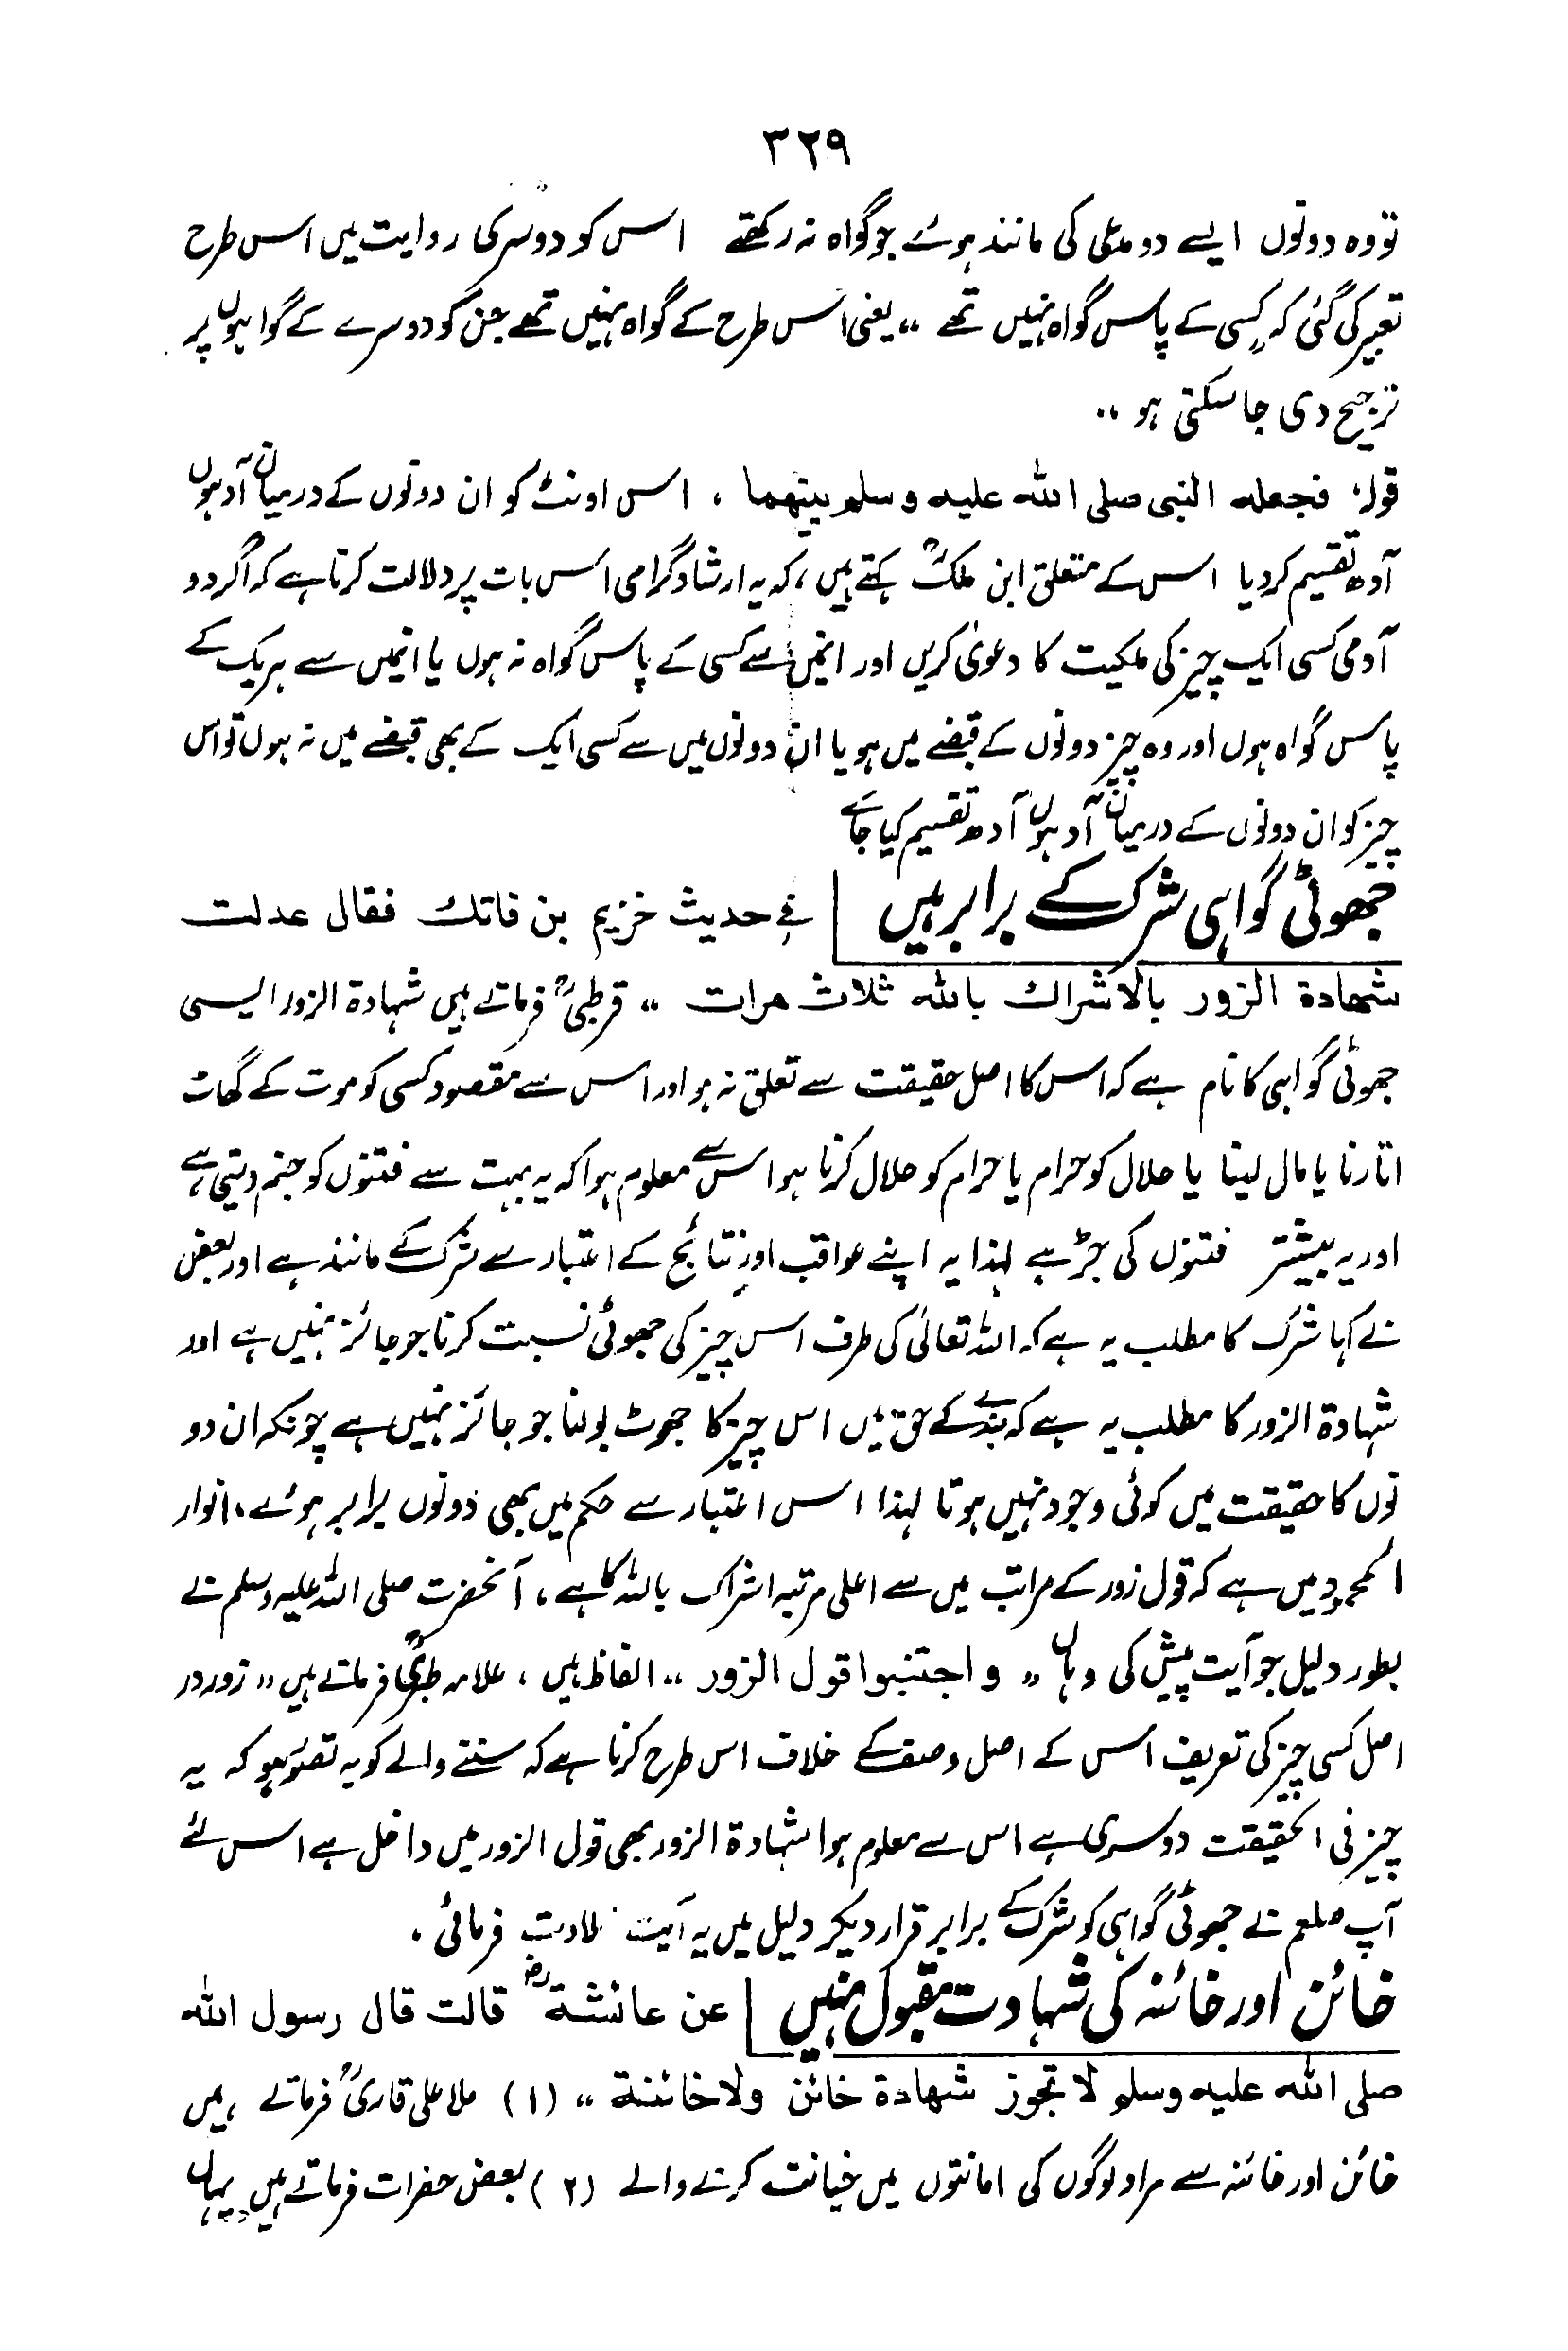 ۳۲۹
تو وہ دونوں ایسے دو مدعی کی مانند ہوئے جو گواہ نہ رکھتے اس کو دوسری روایت میں اس طرح
تعبیر کی گئی کہ کسی کے پاس گواہ نہیں تھے ،، یعنی اس طرح کے گواہ نہیں تھے جن کو دوسرے کے گواہوں پر
ترجیح دی جاسکتی ہو ،،
قولہٗ فجعلہ النبی صلی اللہ علیہ وسلم بینھما ، اس اونٹ کو ان دونوں کے درمیان آدہوں
آدھ تقسیم کردیا اس کے متعلق ابن ملکؒ کہتے ہیں ، کہ یہ ارشاد گرامی اس بات پر دلالت کرتا ہے کہ اگر دو
آدمی کسی ایک چیز کی ملکیت کا دعویٰ کریں اور انمیں سے کسی کے پاس گواہ نہ ہوں یا انمیں سے ہریک کے
پاس گواہ ہوں اور وہ چیز دونوں کے قبضے میں ہو یا ان دونوں میں سے کسی ایک کے بھی قبضے میں نہ ہوں تو اس
چیز کو ان دونوں کے درمیان آدہوں آدھ تقسیم کیا جائے
جھوٹی گواہی شرک کے برابر ہیں | فی حدیث خزیم بن فاتک فقال عدلت
شھادۃ الزور بالاشراک باللہ ثلاث مرات ،، قرطبیؒ فرماتے ہیں شہادۃ الزور ایسی
جھوٹی گواہی کا نام ہے کہ اس کا اصل حقیقت سے تعلق نہ ہو اور اس سے مقصود کسی کو موت کے گھاٹ
اتارنا یا مال لینا یا حلال کو حرام یا حرام کو حلال کرنا ہو اس سے معلوم ہوا کہ یہ بہت سے فتنوں کو جنم دیتی ہے
اور یہ بیشتر فتنوں کی جڑ ہے لہذا یہ اپنے عواقب اور نتائج کے اعتبار سے شرک کے مانند ہے اور بعض
نے کہا شرک کا مطلب یہ ہے کہ اللہ تعالیٰ کی طرف اس چیز کی جھوٹی نسبت کرنا جو جائز نہیں ہے اور
شہادۃ الزور کا مطلب یہ ہے کہ بندے کے حق میں اس چیز کا جھوٹ بولنا جو جائز نہیں ہے چونکہ ان دو
نوں کا حقیقت میں کوئی وجود نہیں ہوتا لہذا اس اعتبار سے حکم میں بھی دونوں برابر ہوئے ، انوار
المحمود میں ہے کہ قول زور کے مراتب میں سے اعلی مرتبہ اشراک باللہ کا ہے ، آنحضرت صلی اللہ علیہ وسلم نے
بطور دلیل جو آیت پیش کی وہاں ,, واجتنبوا قول الزور ،، الفاظ ہیں ، علامہ طبریؒ فرماتے ہیں ,, زور در
اصل کسی چیز کی تعریف اس کے اصل وصف کے خلاف اس طرح کرنا ہے کہ سننے والے کو یہ تصور ہو کہ یہ
چیز فی الحقیقت دوسری ہے اس سے معلوم ہوا شہادۃ الزور بھی قول الزور میں داخل ہے اس لئے
آپ صلعم نے جھوٹی گواہی کو شرک کے برابر قرار دیکر دلیل میں یہ آیت تلاوت فرمائی ۔
خائن اور خائنہ کی شہادت مقبول نہیں | عن عائشۃؓ قالت قال رسول اللہ
صلی اللہ علیہ وسلم لا تجوز شھادۃ خائن ولا خائنۃ ،، (۱) ملا علی قاریؒ فرماتے ہیں
خائن اور خائنہ سے مراد لوگوں کی امانتوں میں خیانت کرنے والے (۲) بعض حضرات فرماتے ہیں یہاں